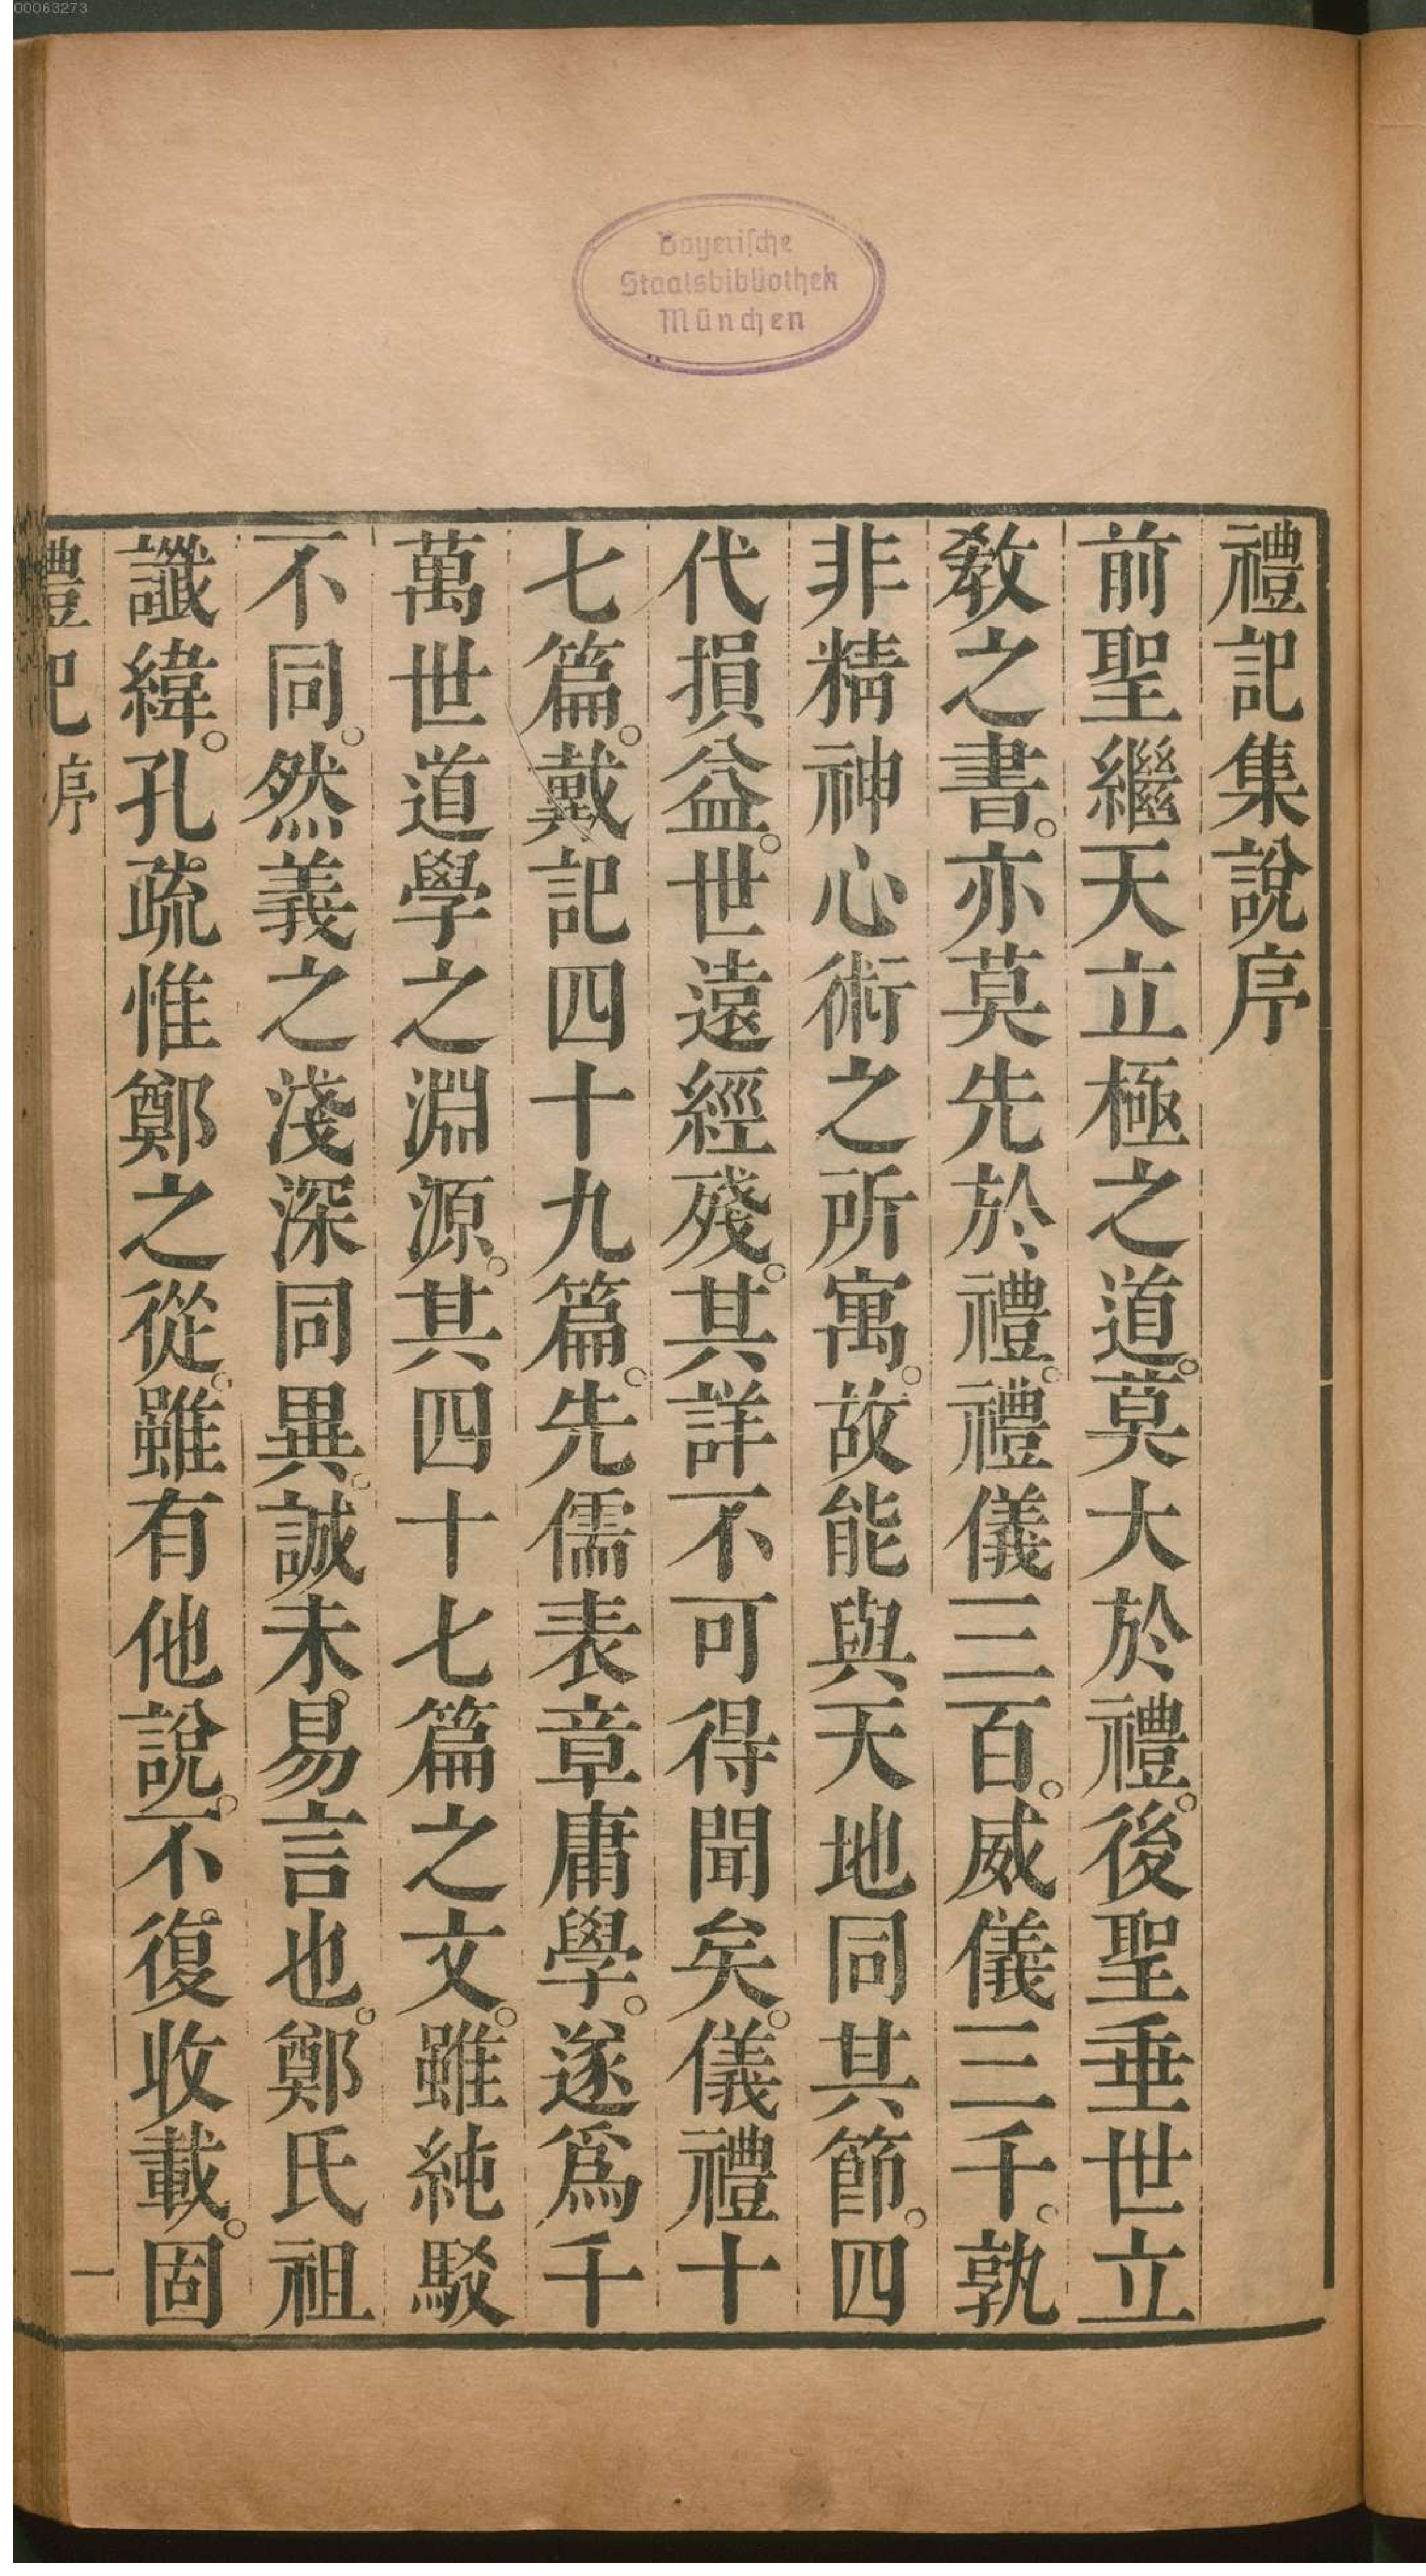 00063273
Bayerische
Staatsbibliothek
München
禮記集說序
前聖繼天立極之道。莫大於禮。後聖垂世立
敎之書。亦莫先於禮。禮儀三百。威儀三千。孰
非精神心術之所寓。故能與天地同其節。四
代損益。世遠經殘。其詳不可得聞矣。儀禮十
七篇。戴記四十九篇。先儒表章庸學。遂爲千
萬世道學之淵源。其四十七篇之文。雖純駁
不同。然義之淺深同異。誠未易言也。鄭氏祖
讖緯。孔疏惟鄭之從。雖有他說。不復收載。固
禮記序
一